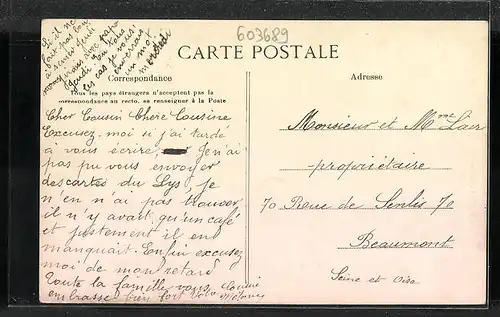 603689
CARTE POSTALE
Correspondance
Tous les pays étrangers n'acceptent pas la
correspondance au recto, se renseigner à la Poste
Adresse
S'il ne
fait pas bon
jeudi
les cas je vous
enverrais
un mot
mercredi
Cher Cousin Chère Cousine
Excusez-moi si j'ai tardé
à vous écrire Je n'ai
pas pu vous envoyer
des cartes du Lys, Je
n'en n ai pas trouver
il n'y avait qu'un café
et justement il en
manquait. Enfin excusez
moi de mon retard
Toute la famille vous
embrasse bien fort Votre Cousine
Monsieur et Mme
propriétaire
70 Rue de Senlis 70
Beaumont
Seine et Oise